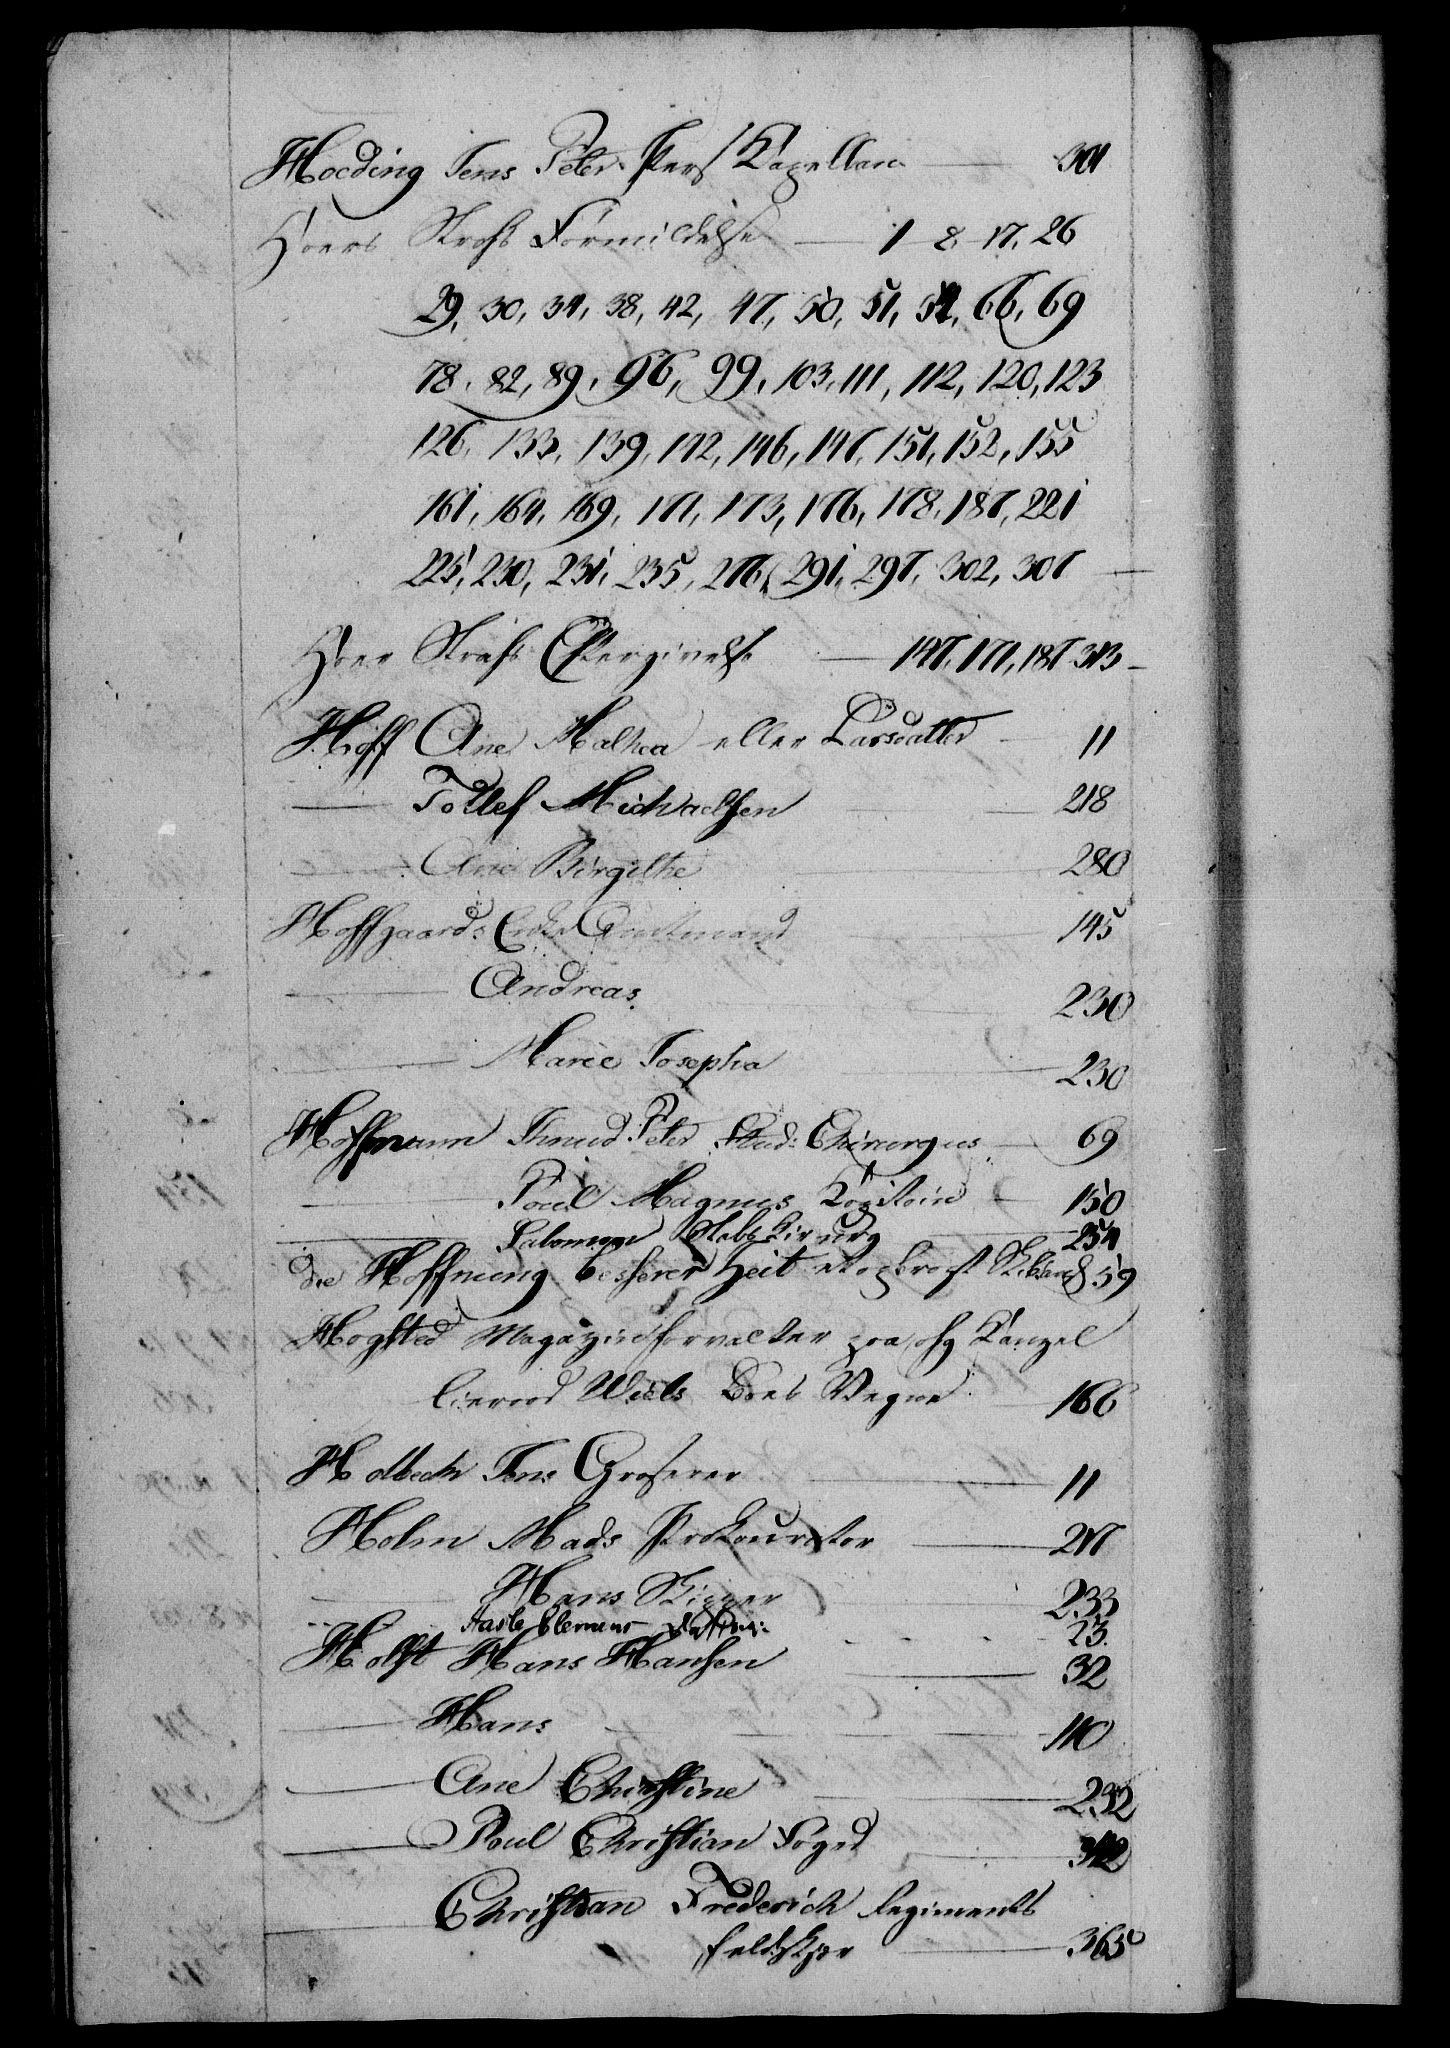 Hoeding Jens Peter Pers Kapellan 301
Hoers Strafs Formildelse 1 8 17, 26
29, 30, 34, 38, 42, 47, 50, 51, 54, 66, 69
78, 82, 89, 96, 99, 103, 111, 112, 120, 123
126, 133, 139, 142, 146, 147, 151, 152, 155
161, 164, 169, 171, 173, 176, 178, 187, 221
225, 230, 231, 235, 276, 291, 297, 302, 307
Hoer Strafs Eftergivelse 147, 171, 187 313
Hoff Ane Malhea eller Larsdatter 11
Tollef Michaelsen 218
Ane Birgithe 280
Hoffgaards Enke 145
Andreas 230
Marie Josepha 230
Hoffmann Knud Peter Stud: Chirurgus 69
Poul Magnus Kapitain 150
Salomon Stabs Kirurg 254
die Hoffnung besserer Zeit 59
Hogsted Magazinforvalter paa Kanzel
lieraad Wiels Boes Vegne 166
Holbech Jens Grosserer 11
Holm Mads Prokurator 217
Hans Skipper 233
Aasle Clemens 23
Holst Hans Hansen 32
Hans 110
Ane Christine 232
Poul Christian Foged 312
Christian Frederich Regiments
feldskjær 365